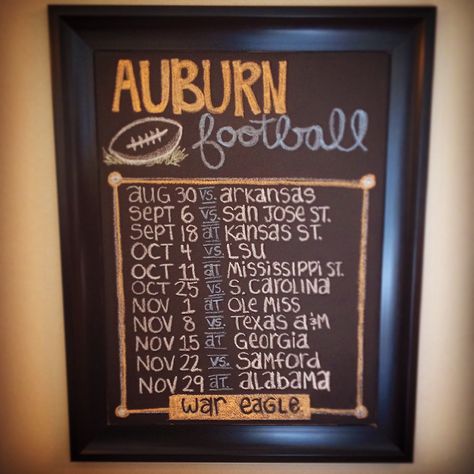 AUBURN
football
AUG 30 vs. arKansas
SEPT 6 vs. San Jose St.
Sept 18 at Kansas St.
Oct 4 vs. LSU
Oct 11 at Mississippi St.
Oct 25 vs. S. Carolina
Nov 1 at Ole Miss
Nov 8 vs. Texas a&M
Nov 15 at Georgia
Nov 22 vs. Samford
Nov 29 at alabama
War Eagle